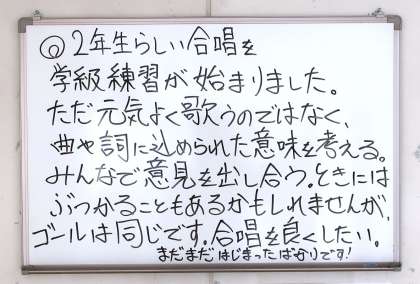 ◎2年生らしい合唱を
学級練習が始まりました。
ただ元気よく歌うのではなく、
曲や詞に込められた意味を考える。
みんなで意見を出し合う。ときには
ぶつかることもあるかもしれませんが、
ゴールは同じです。合唱を良くしたい。
まだまだはじまったばかりです!